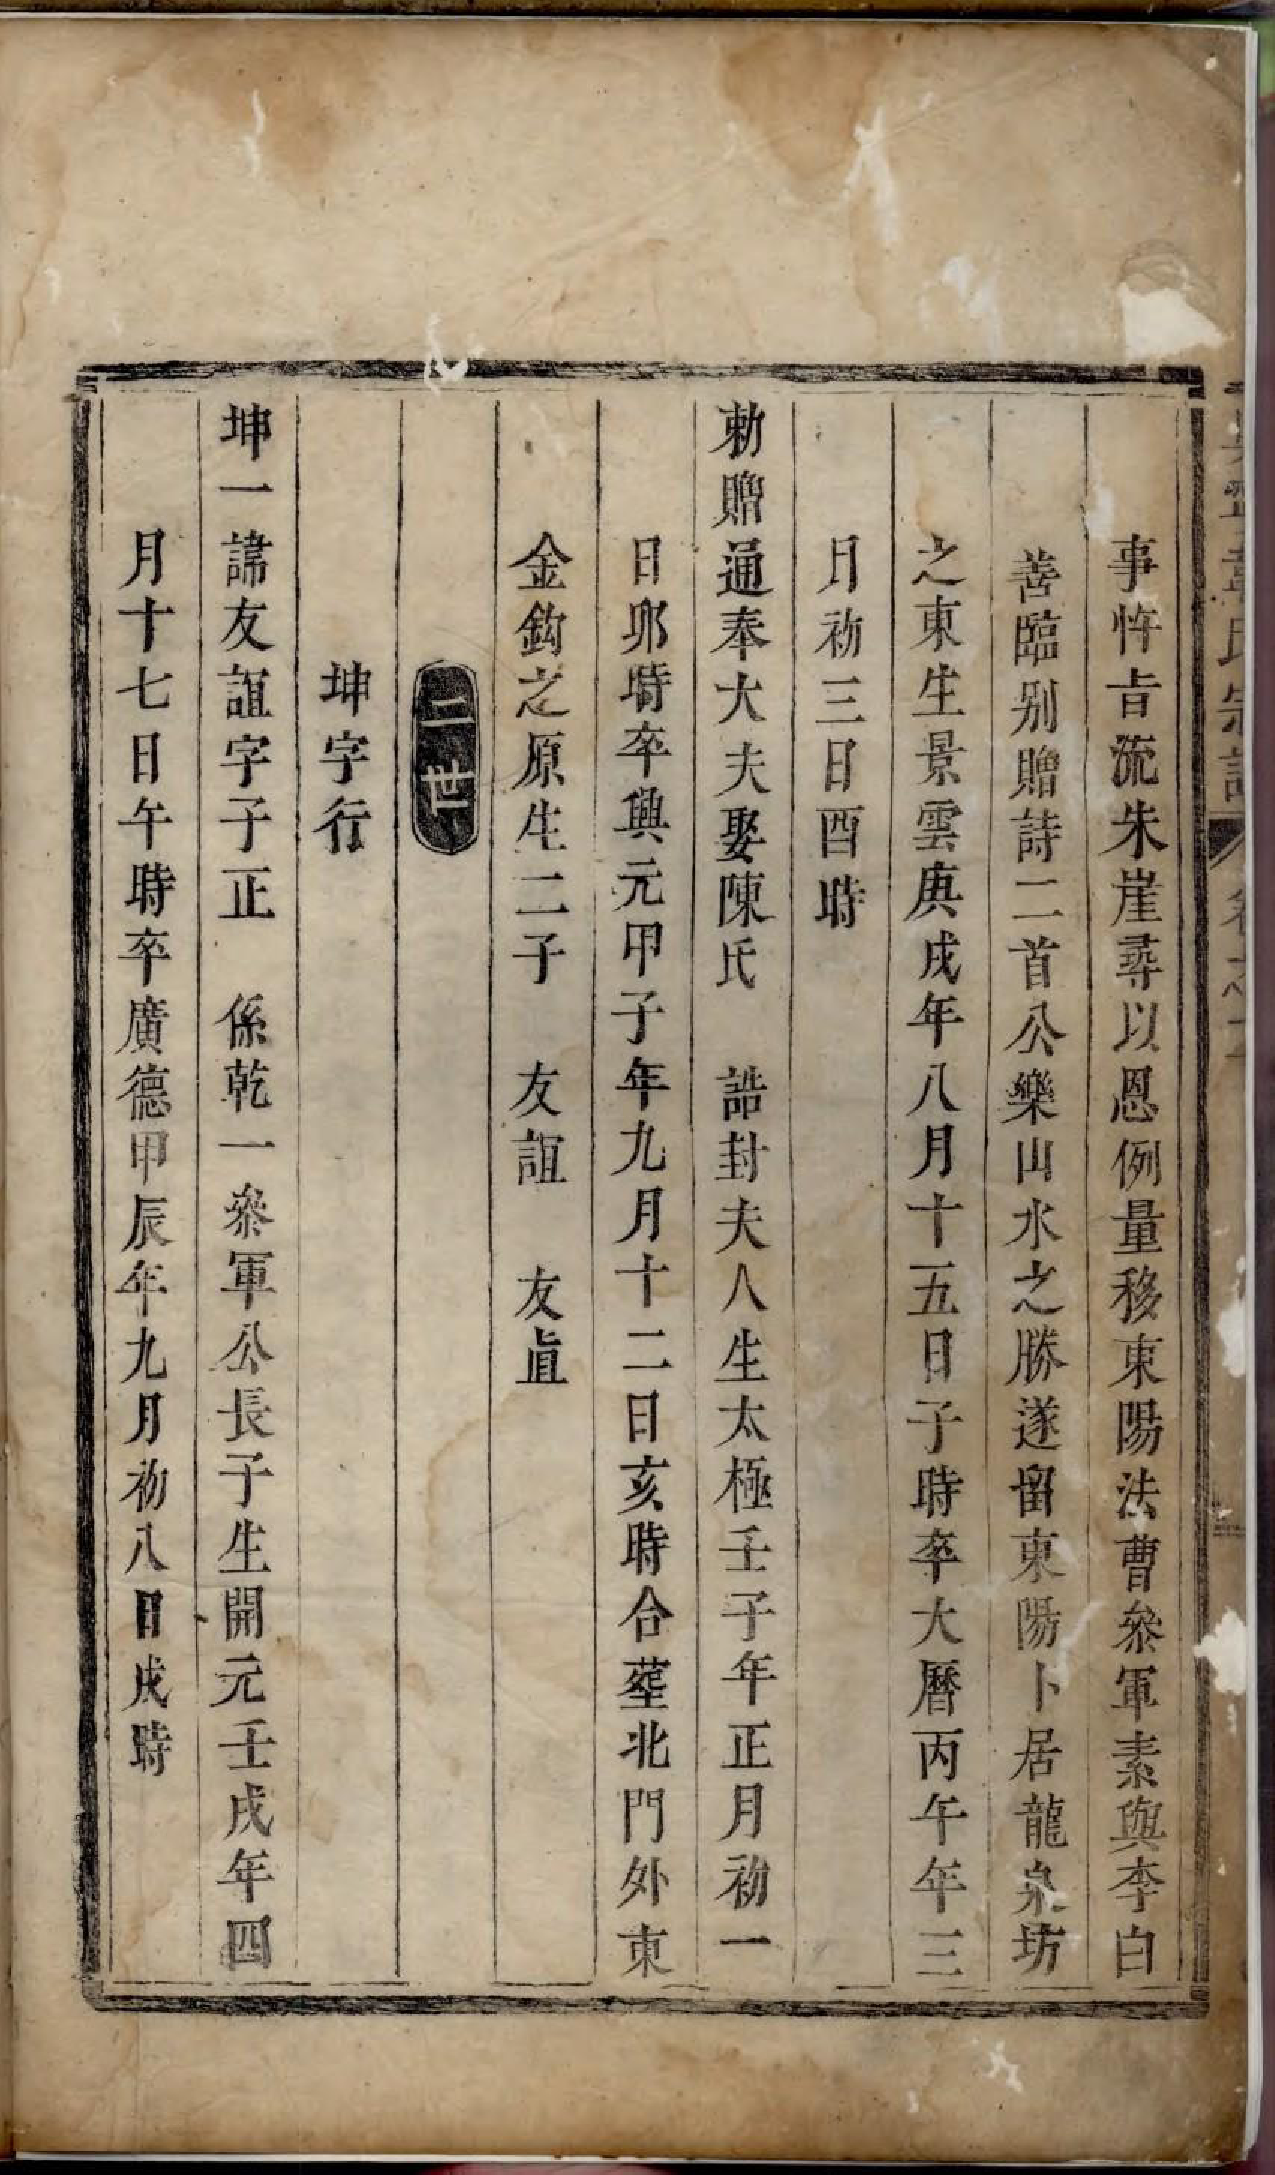 事忤旨流朱崖尋以恩例量移東陽法曹叅軍素與李白
善臨别贈詩二首公樂山水之勝遂留東陽卜居龍泉坊
之東生景雲庚戌年八月十五日子時卒大曆丙午年三
月初三日酉時
勅贈通奉大夫娶陳氏　誥封夫人生太極壬子年正月初一
日卯時卒興元甲子年九月十二日亥時合塟北門外東
金鈎之原生二子　友誼　友直
二世
坤字行
坤一諱友誼字子正　係乾一叅軍公長子生開元壬戌年四
月十七日午時卒廣德甲辰年九月初八日戌時